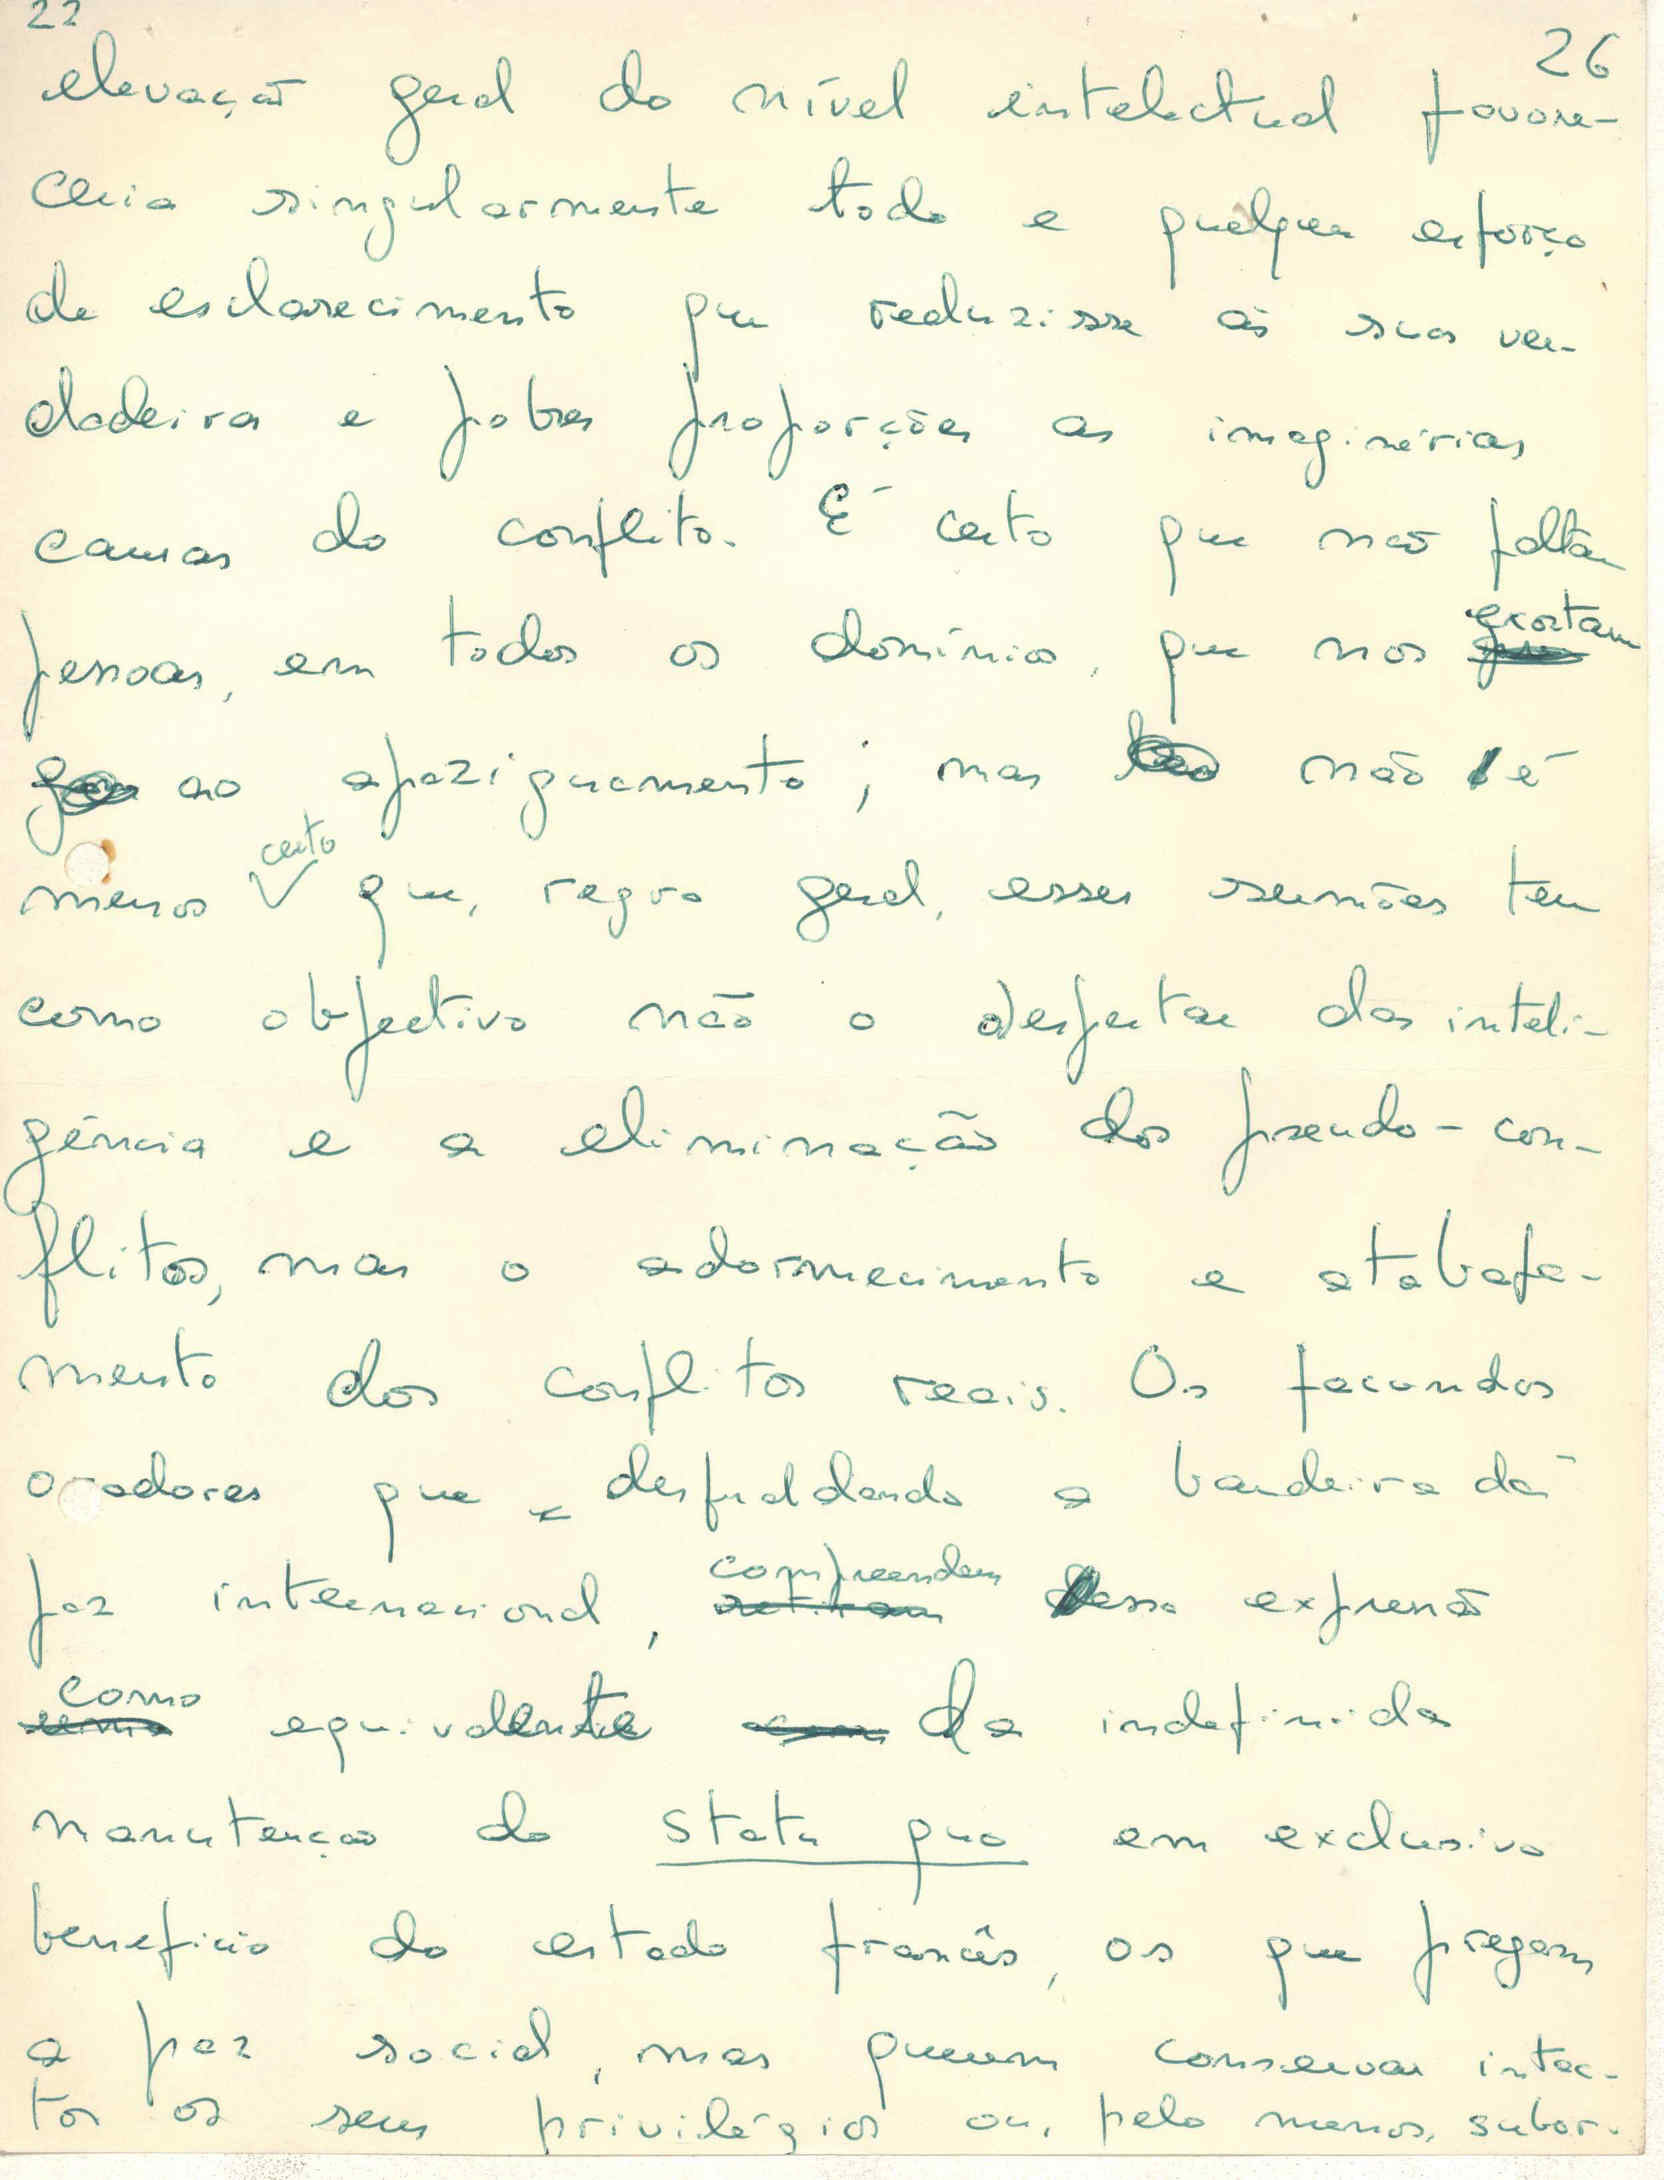 22
26
elevação geral do nível intelectual favore-
ceria singularmente todo e qualquer esforço
de esclarecimento que reduzisse às suas ver-
dadeiras e pobres proporções as imaginárias
causas do conflito. É certo que não faltam
exortam
pessoas, em todos os domínios, que nos
ao apaziguamento; mas não é
certo
menos que, regra geral, esses sermões tem
como objectivo não o despertar das inteli-
gência e a eliminação dos pseudo-con-
flitos, mas o adormecimento e atabafa-
mento dos conflitos reais. Os facundos
oradores que desfraldando a bandeira da
compreendem
paz internacional, essa expressão
como
equivalente da indefinida
manutenção do statu quo em exclusivo
benefício do estado francês, os que pregam
a paz social, mas querem conservar intac-
tos os seus privilégios ou, pelo menos, subor-